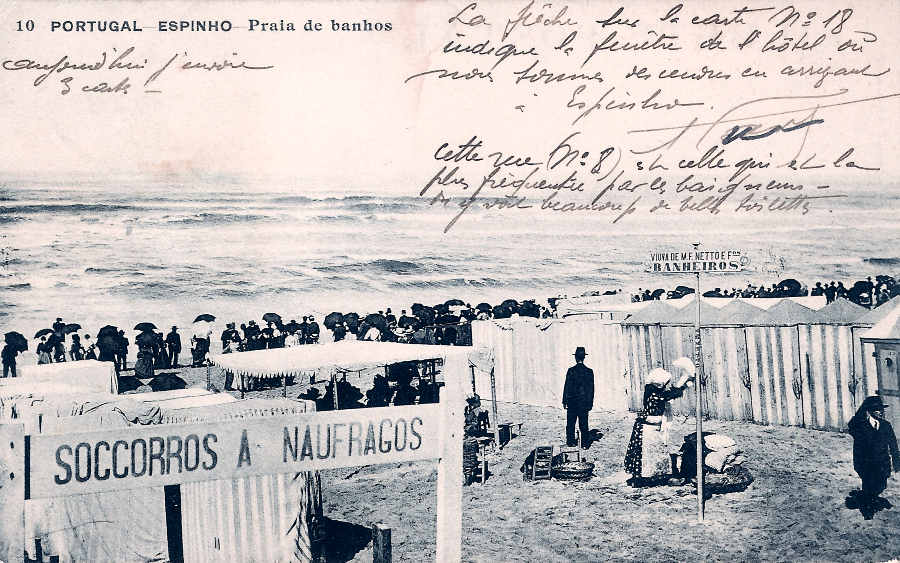 10 PORTUGAL ESPINHO Praia de banhos
aujourd'hui j'envoie
3 cartes —
La flêche sur la carte Nº 18
indique la fenêtre de l'hôtel où
nous sommes descendus en arrivant
à Espinho.
Cette rue (Nº 8) est celle qui est la
plus fréquentée par les baigneurs —
On y voit beaucoup de belles toilettes
VIUVA DE M.F. NETTO E Fos
BANHEIROS
SOCCORROS A NAUFRAGOS